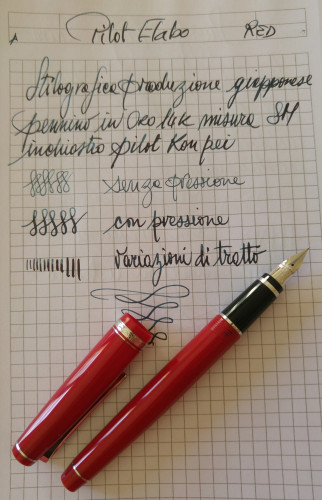 Pilot Elabo RED
Stilografica produzione giapponese
pennino in Oro 14k misura SM
inchiostro pilot Kon peki
senza pressione
con pressione
variazioni di tratto